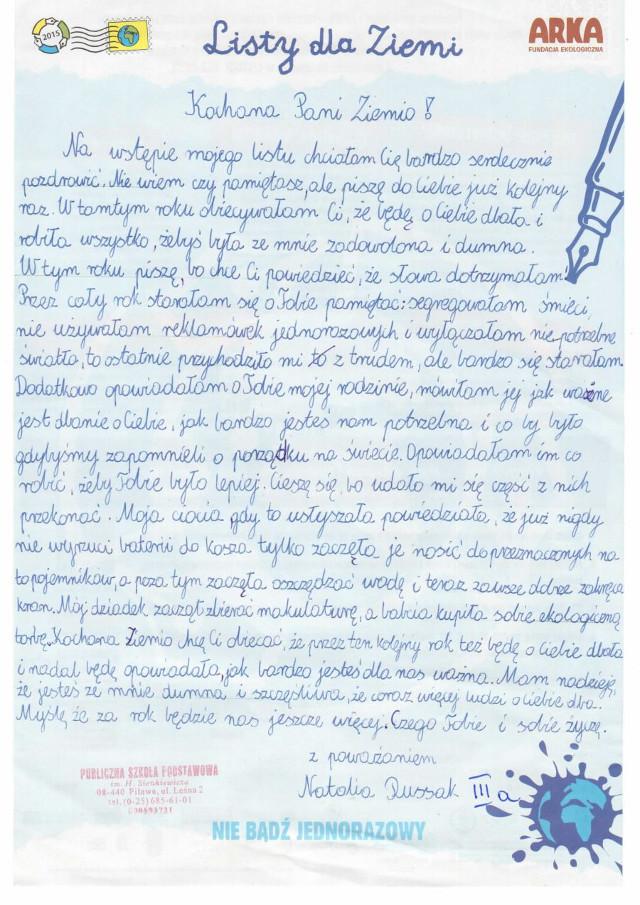 2015
Listy dla Ziemi
ARKA
FUNDACJA EKOLOGICZNA
Kochana Pani Ziemio!
Na wstępie mojego listu chciałam Cię bardzo serdecznie
pozdrowić. Nie wiem czy pamiętasz, ale piszę do Ciebie już kolejny
raz. W tamtym roku obiecywałam Ci, że będę o Ciebie dbała i
robiła wszystko, żebyś była ze mnie zadowolona i dumna.
W tym roku piszę, bo chcę Ci powiedzieć, że słowa dotrzymałam!
Przez cały rok starałam się o Tobie pamiętać: segregowałam śmieci,
nie używałam reklamówek jednorazowych i wyłączałam niepotrzebne
światła, to ostatnie przychodziło mi to z trudem, ale bardzo się starałam.
Dodatkowo opowiadałam o Tobie mojej rodzinie, mówiłam jej jak ważne
jest dbanie o Ciebie, jak bardzo jesteś nam potrzebna i co by było
gdybyśmy zapomnieli o porządku na świecie. Opowiadałam im co
robić, żeby Tobie było lepiej. Cieszę się, bo udało mi się część z nich
przekonać. Moja ciocia gdy to usłyszała powiedziała, że już nigdy
nie wyrzuci baterii do kosza tylko zaczęła je nosić do przeznaczonych na
to pojemników, a poza tym zaczęła oszczędzać wodę i teraz zawsze dobrze zakręca
kran. Mój dziadek zaczął zbierać makulaturę, a babcia kupiła sobie ekologiczną
torbę. Kochana Ziemio chcę Ci obiecać, że przez ten kolejny rok też będę o Ciebie dbała
i nadal będę opowiadała, jak bardzo jesteś dla nas ważna. Mam nadzieję,
że jesteś ze mnie dumna i szczęśliwa, że coraz więcej ludzi o Ciebie dba.
Myślę że za rok będzie nas jeszcze więcej. Czego Tobie i sobie życzę.
z poważaniem
Natalia Russak III a
PUBLICZNA SZKOŁA PODSTAWOWA
im. H. Sienkiewicza
08-440 Pilawa, ul. Leśna 2
tel. (0-25) 685-61-01
NIE BĄDŹ JEDNORAZOWY